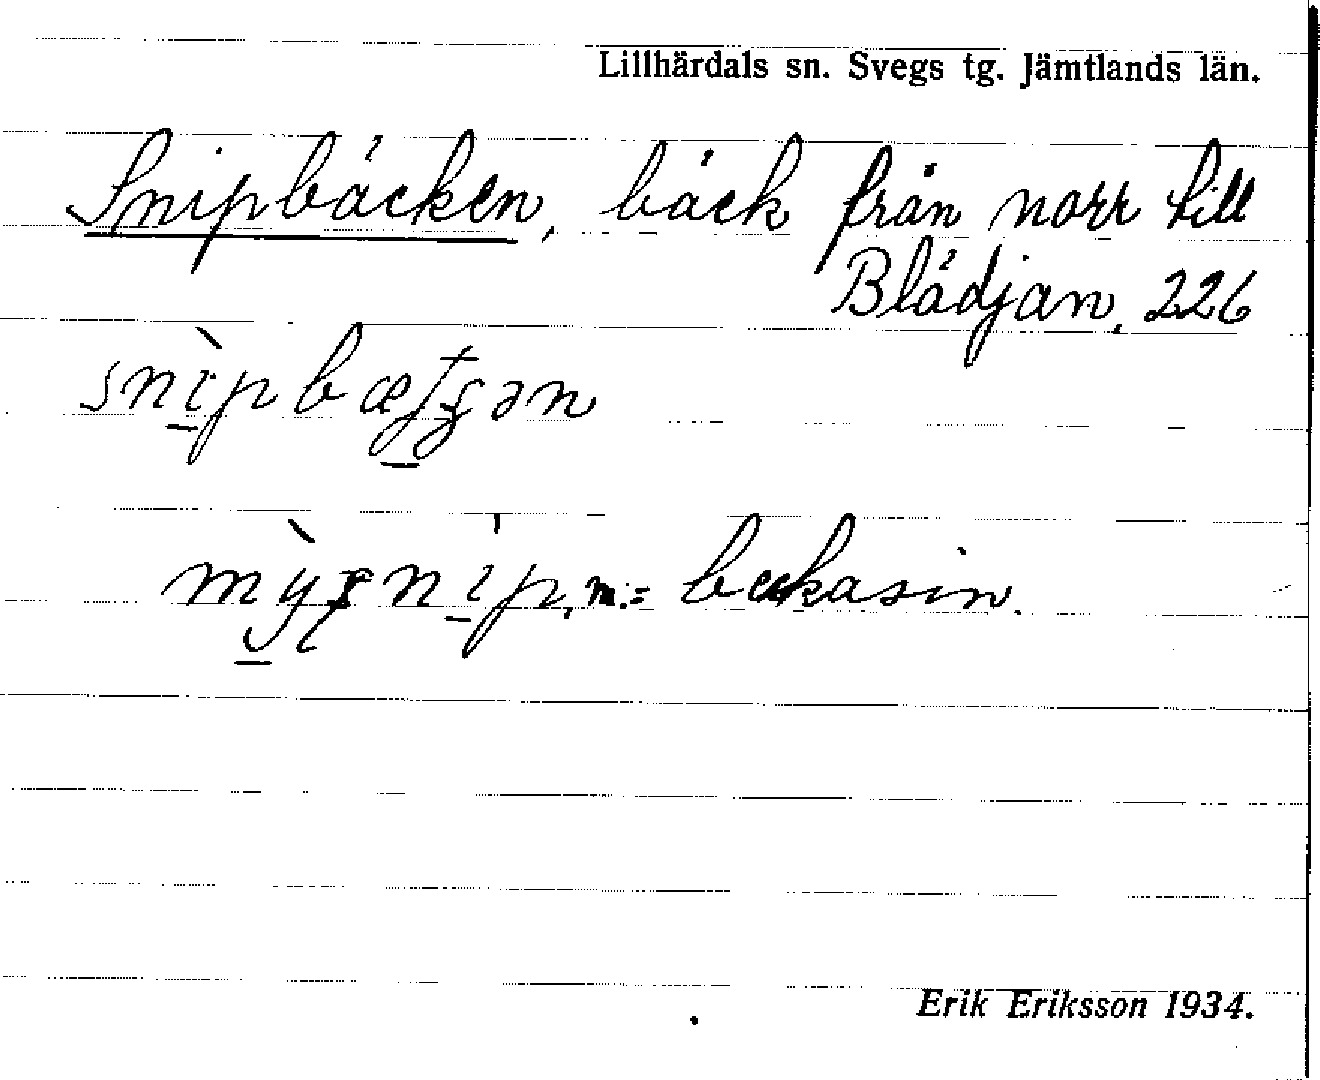 Lillhärdals sn. Svegs tg. Jämtlands län.
Snipbäcken, bäck från norr till
Blädjan, 226
m.= beckasin.
Erik Eriksson 1934.